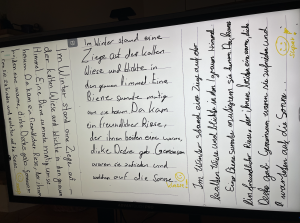 Im Winter stand eine
Ziege auf der kalten
Wiese und blickte in
den grauen Himmel. Eine
Biene summte mutig
um sie herum. Da kam
ein freundlicher Riese,
der ihnen beiden eine warme,
dicke Decke gab. Gemeinsam
waren sie zufrieden und
warteten auf die Sonne.
Im Winter stand eine Ziege auf der
kalten Wiese und blickte in den grauen Himmel.
Eine Biene summte mutig um sie herum. Da kam
ein freundlicher Riese, der ihnen beiden eine warme, dicke
Decke gab. Gemeinsam waren sie zufrieden und
warteten auf die Sonne.
Im Winter stand eine Ziege auf
der kalten Wiese und blickte in den grauen
Himmel. Eine Biene summte mutig um sie
herum. Da kam ein freundlicher Riese, der ihnen
beiden eine warme, dicke Decke gab. Gemeinsam